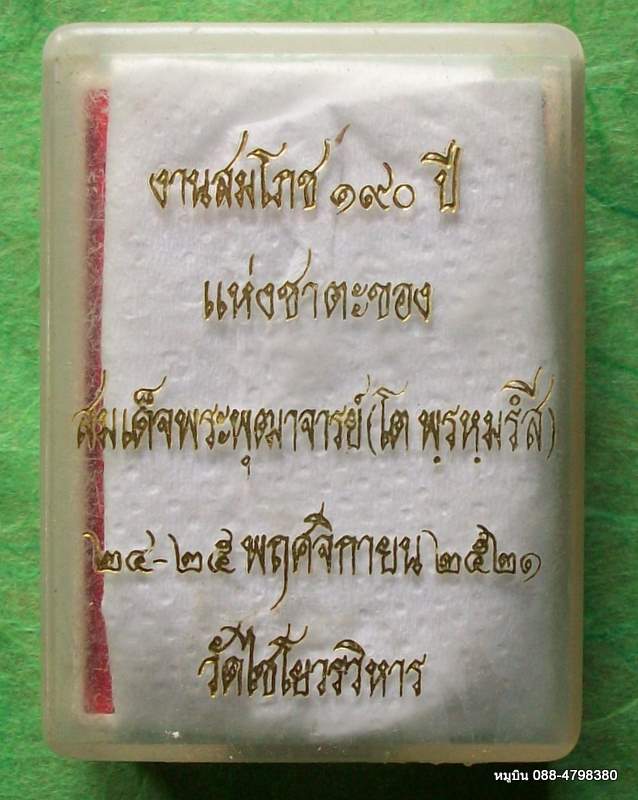 งานสมโภช ๑๙๐ ปี
แห่งชาตะของ
สมเด็จพระพุฒาจารย์(โต พฺรหฺมรํสี)
๒๔-๒๕ พฤศจิกายน ๒๕๒๑
วัดไชโยวรวิหาร
หมูบิน 088-4798380